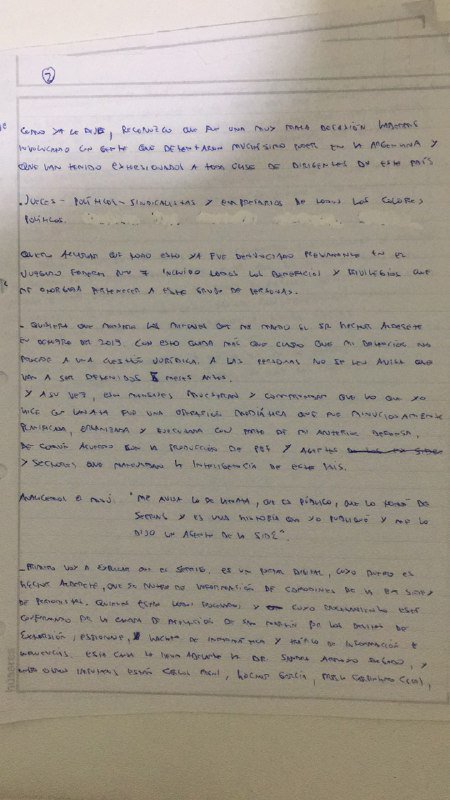 2
COMO YA LO DIJE, RECONOZCO QUE FUE UNA MUY MALA DECISIÓN HABERME
INVOLUCRADO CON GENTE QUE DETENTARON MUCHÍSIMO PODER EN LA ARGENTINA Y
QUE HAN TENIDO EXTORSIONADOS A TODA CLASE DE DIRIGENTES DE ESTE PAÍS
. JUECES - POLÍTICOS - SINDICALISTAS Y EMPRESARIOS DE TODOS LOS COLORES
POLÍTICOS.
QUIERO ACLARAR QUE TODO ESTO YA FUE DENUNCIADO PREVIAMENTE EN EL
JUZGADO FEDERAL NRO 7 INCLUIDO TODOS LOS BENEFICIOS Y PRIVILEGIOS QUE
ME OTORGABA PERTENECER A ESTE GRUPO DE PERSONAS.
- QUISIERA QUE MUESTRE LOS MENSAJES QUE ME MANDÓ EL SR HECTOR ALDERETE
EN OCTUBRE DEL 2019. CON ESTO QUEDA MÁS QUE CLARO QUE MI DETENCIÓN NO
RESPONDE A UNA CUESTIÓN JURÍDICA. A LAS PERSONAS NO SE LES AVISA QUE
VAN A SER DETENIDOS MESES ANTES.
Y A SU VEZ, ESOS MENSAJES MUESTRAN Y COMPRUEBAN QUE LO QUE YO
HICE CON FUE UNA OPERACIÓN MEDIÁTICA QUE FUE MINUCIOSAMENTE
PLANIFICADA, ORGANIZADA Y EJECUTADA CON PARTE DE MI ANTERIOR DEFENSA,
DE COMÚN ACUERDO CON LA PRODUCCIÓN DE Y AGENTES
Y SECTORES QUE MANEJABAN LA INTELIGENCIA DE ESTE PAÍS.
ANALICEMOS EL MSJ: "ME AVISA LO DE QUE ES PÚBLICO, QUE LO DE
SEPRIN Y ES UNA HISTORIA QUE YO PUBLIQUÉ Y ME LO
DIJO UN AGENTE DE LA SIDE".
- PRIMERO VOY A EXPLICAR QUE EL SEPRIN, ES UN PORTAL DIGITAL, CUYO DUEÑO ES
HECTOR ALDERETE, QUE SE NUTRE DE INFORMACIÓN DE CARPETAZOS DE LA EX SIDE Y
DE PERIODISTAS. QUIENES ESTÁN PROCESADOS Y CUYO PROCESAMIENTO ESTÁ
CONFIRMADO POR LA CÁMARA DE APELACIÓN DE SAN MARTÍN POR LOS DELITOS DE
EXTORSIÓN, ESPIONAJE, HACKEO DE INFORMÁTICA Y TRÁFICO DE INFORMACIÓN E
INFLUENCIAS. ESTA CAUSA LA LLEVA ADELANTE LA DR. SANDRA ARROYO SALGADO, Y
ENTRE OTROS IMPUTADOS ESTÁN CARLOS HECTOR GARCÍA,